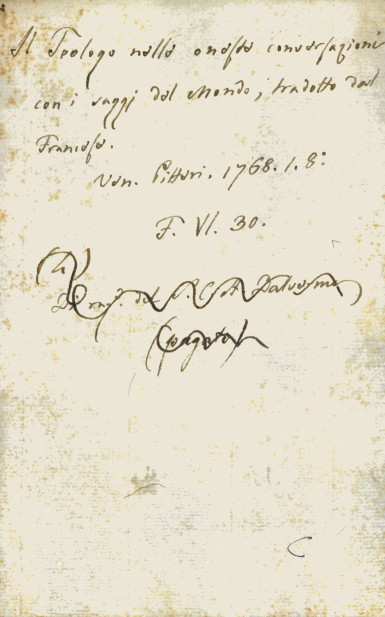 Il Teologo nelle oneste conversazioni
con i saggi del Mondo, tradotto dal
Francese.
Ven. Pitteri. 1768. 1. 8:
F. VI. 30.
del P.